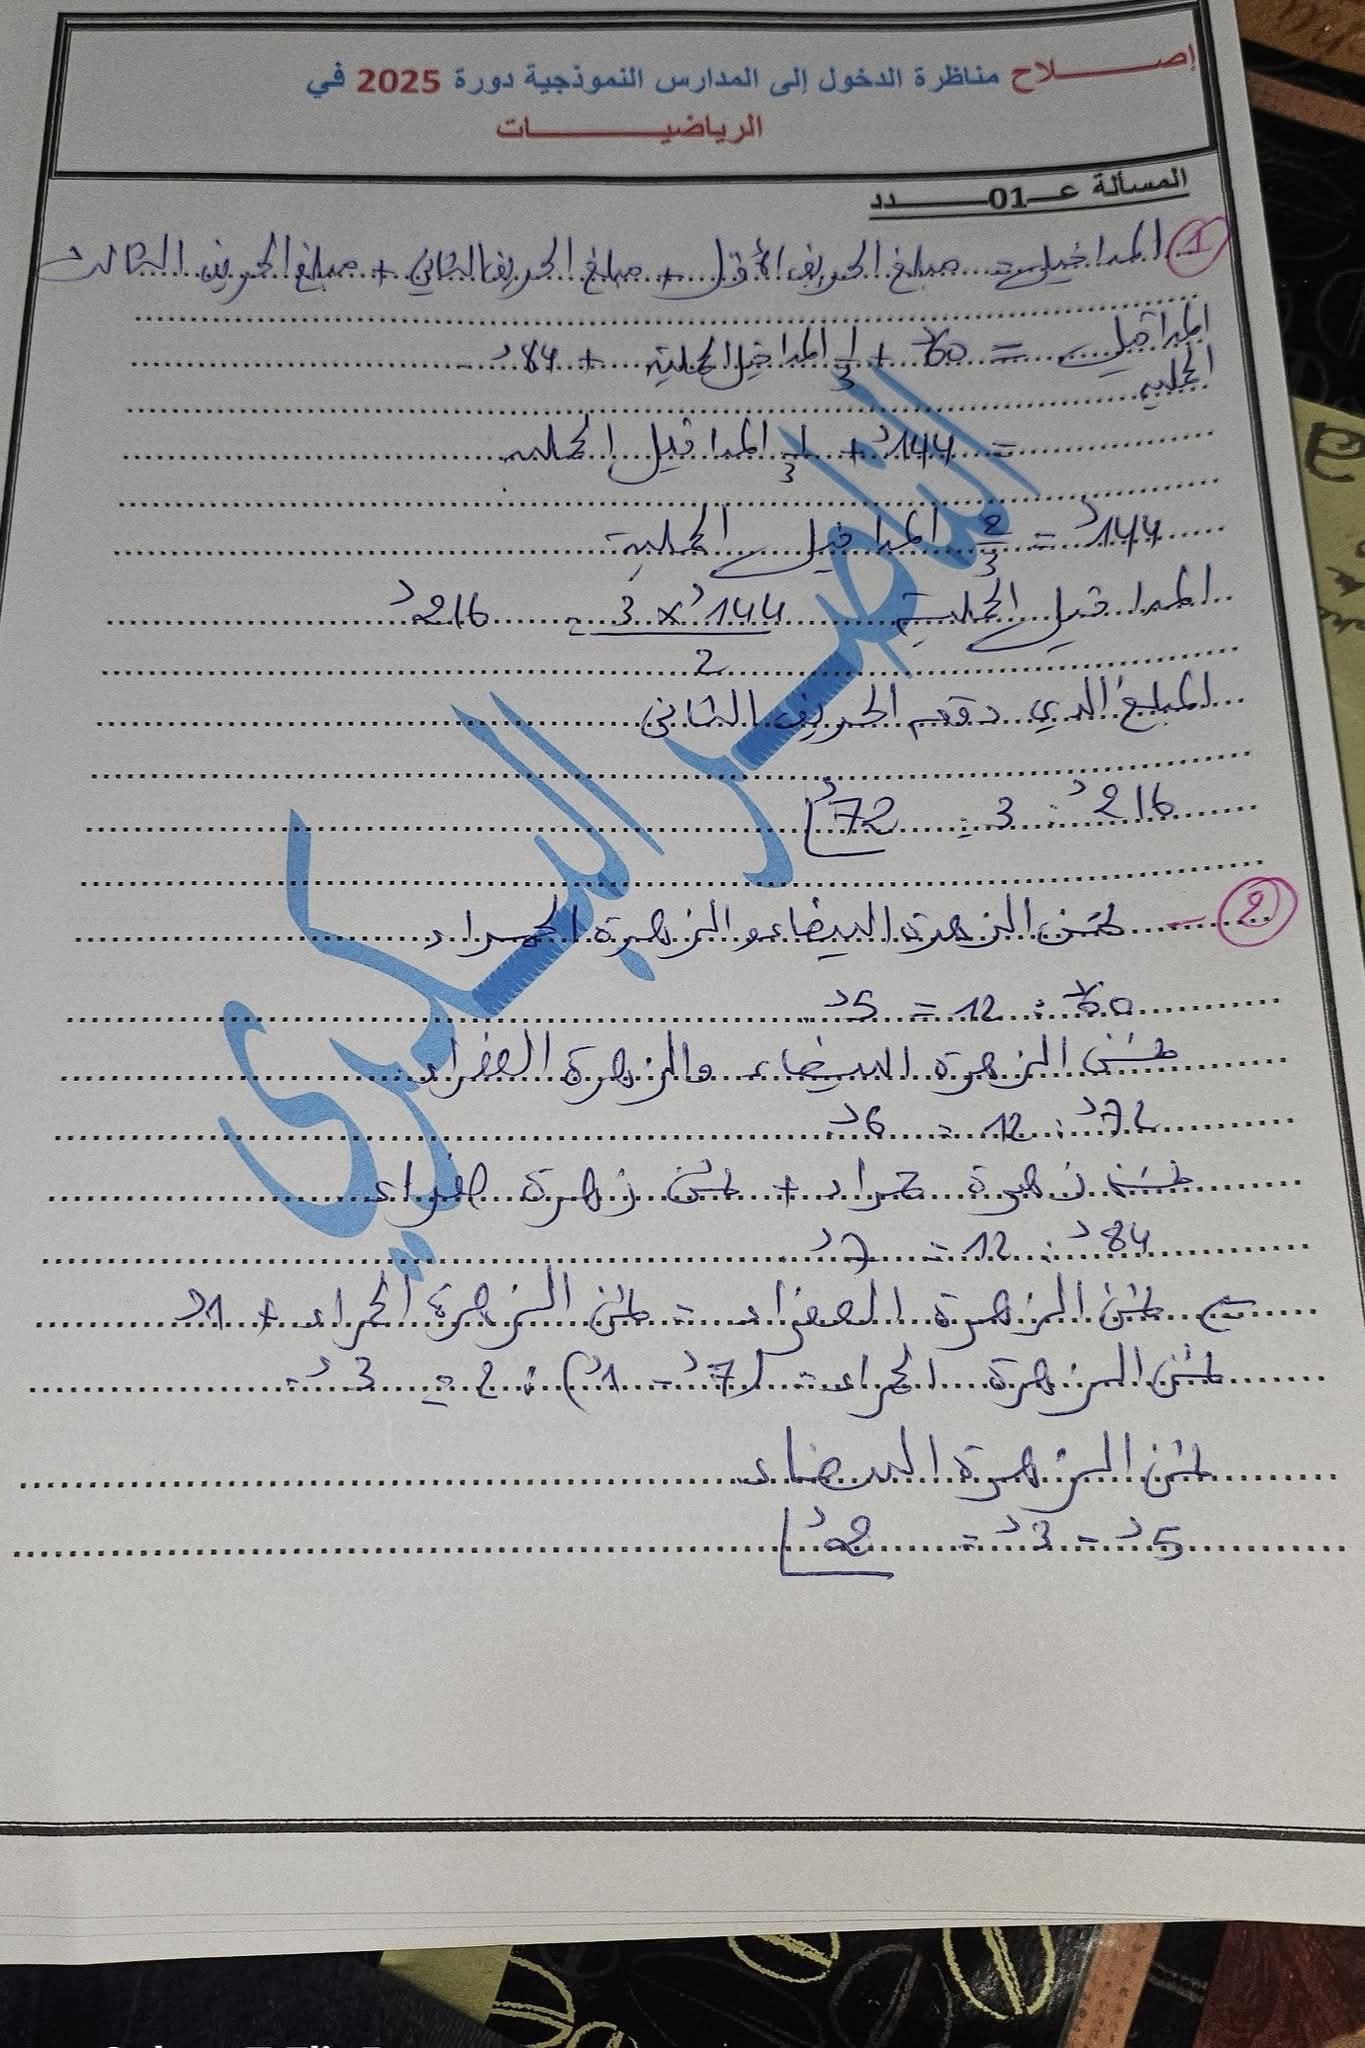 إصـــــلاح مناظرة الدخول إلى المدارس النموذجية دورة 2025 في
الرياضيـــــــــات
المسألة عـــ01ـــــــدد
1 المداخيل = مبلغ الحريف الأول + مبلغ الحريف الثاني + مبلغ الحريف الثالث
المداخيل الجملية = 60د + 1/3 المداخيل الجملية + 84د
= 144د + 1/3 المداخيل الجملية
144د = 2/3 المداخيل الجملية
المداخيل الجملية 3 × 144د / 2 = 216د
المبلغ الذي دفعه الحريف الثاني
216د : 3 = 72د
2 - ثمن الزهرة البيضاء والزهرة الحمراء
60د : 12 = 5د
ثمن الزهرة البيضاء والزهرة الصفراء
72د : 12 = 6د
ثمن زهرة حمراء + ثمن زهرة صفراء
84د : 12 = 7د
ثمن الزهرة الصفراء = ثمن الزهرة الحمراء + 1د
ثمن الزهرة الحمراء = (7د - 1د) : 2 = 3د
ثمن الزهرة البيضاء
5د - 3د = 2د
الناصر البكري